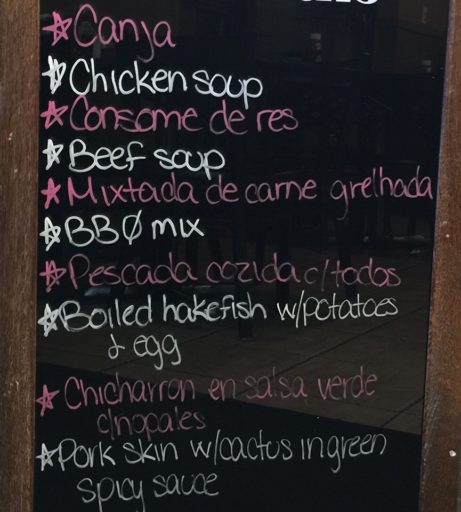 ☆Canja
☆Chicken soup
☆Consome de res
☆Beef soup
☆Mixtada de carne grelhada
☆BBQ mix
☆Pescada cozida c/todos
☆Boiled hakefish w/potatoes
& egg
☆Chicharron en salsa verde
c/nopales
☆Pork skin w/cactus in green
spicy sauce